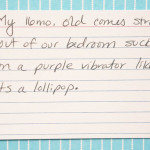 My 11amo. old comes str
out of our bedroom suck
on a purple vibrator like
its a lollipop.